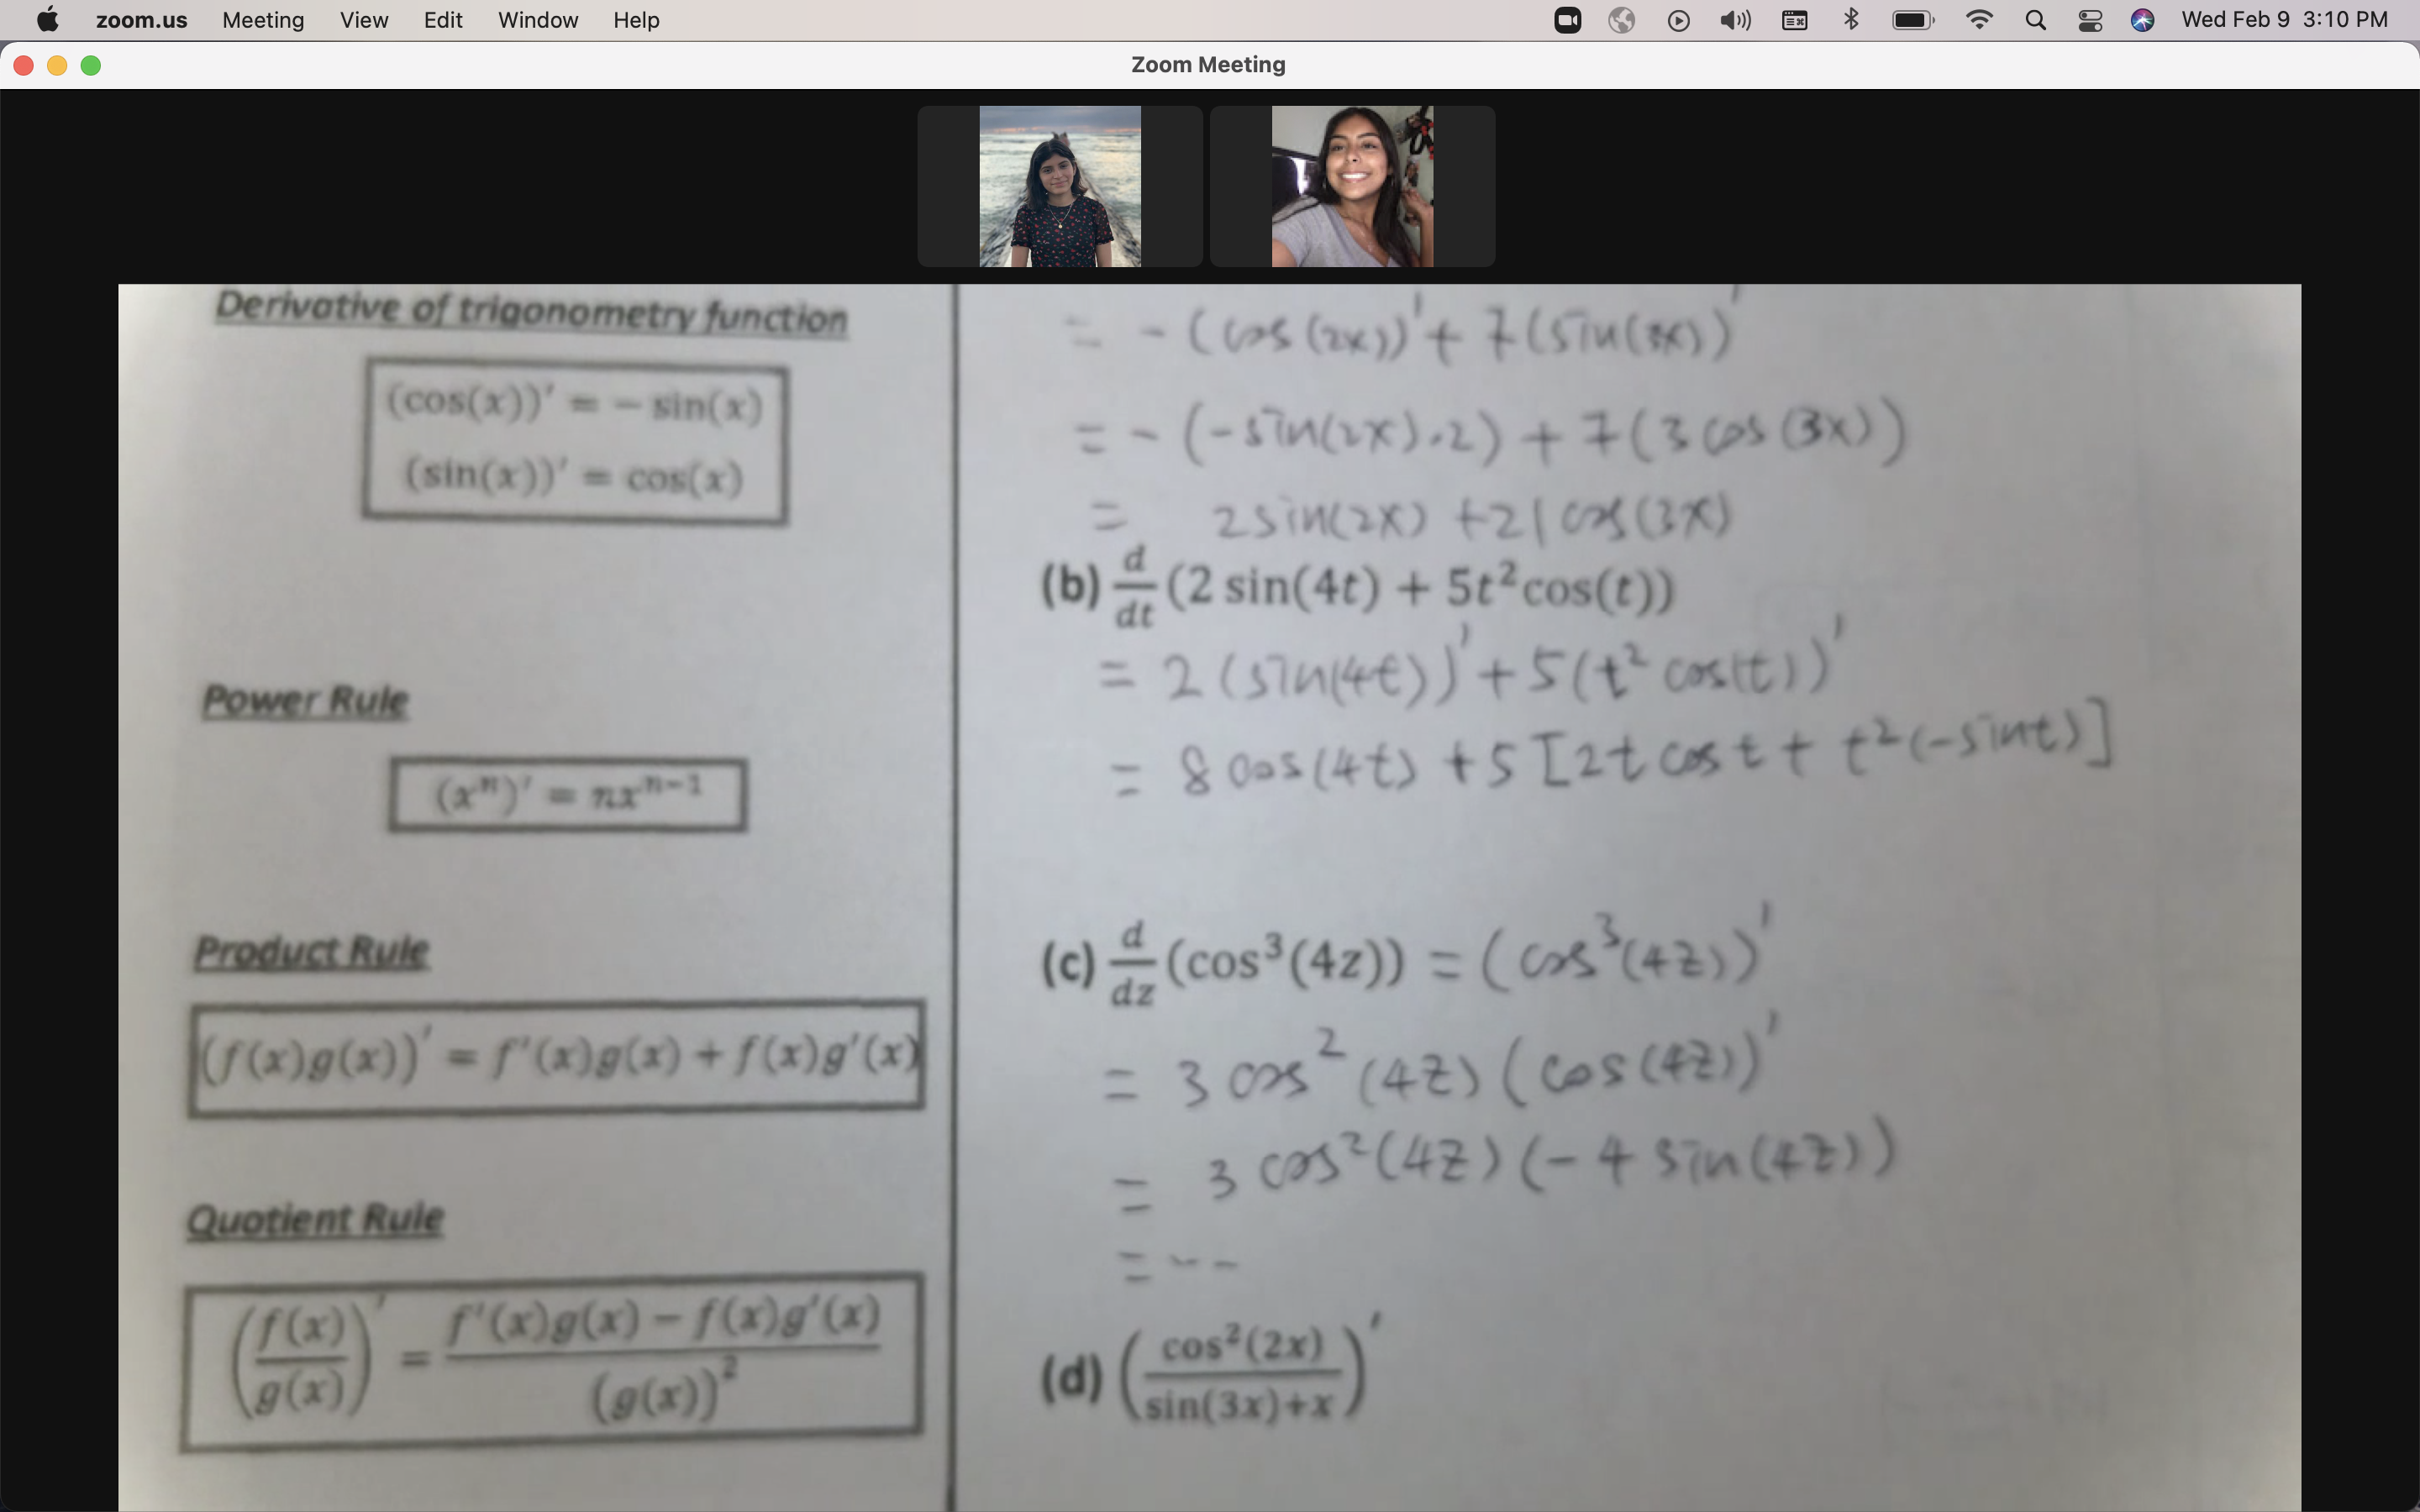 zoom.us Meeting View Edit Window Help Wed Feb 9 3:10 PM
Zoom Meeting
Derivative of trigonometry function
(cos(x))′ = − sin(x)
(sin(x))′ = cos(x)
Power Rule
(xⁿ)′ = nxⁿ⁻¹
Product Rule
(f(x)g(x))′ = f′(x)g(x) + f(x)g′(x)
Quotient Rule
(f(x)/g(x))′ = (f′(x)g(x) − f(x)g′(x))/(g(x))²
= - (cos(2x))' + 7(sin(3x))'
= - (-sin(2x).2) + 7(3 cos(3x))
= 2sin(2x) + 21cos(3x)
(b) d/dt (2 sin(4t) + 5t²cos(t))
= 2(sin(4t))' + 5(t² cos(t))'
= 8 cos(4t) + 5[2t cos t + t²(-sint)]
(c) d/dz (cos³(4z)) = (cos³(4z))'
= 3 cos² (4z) (cos(4z))'
= 3 cos²(4z) (-4 sin(4z))
= ---
(d) (cos²(2x)/sin(3x)+x)′